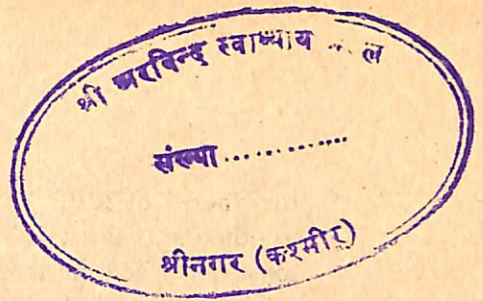 श्री अरविन्द स्वाध्याय ल
संख्या .............
श्रीनगर (कश्मीर)